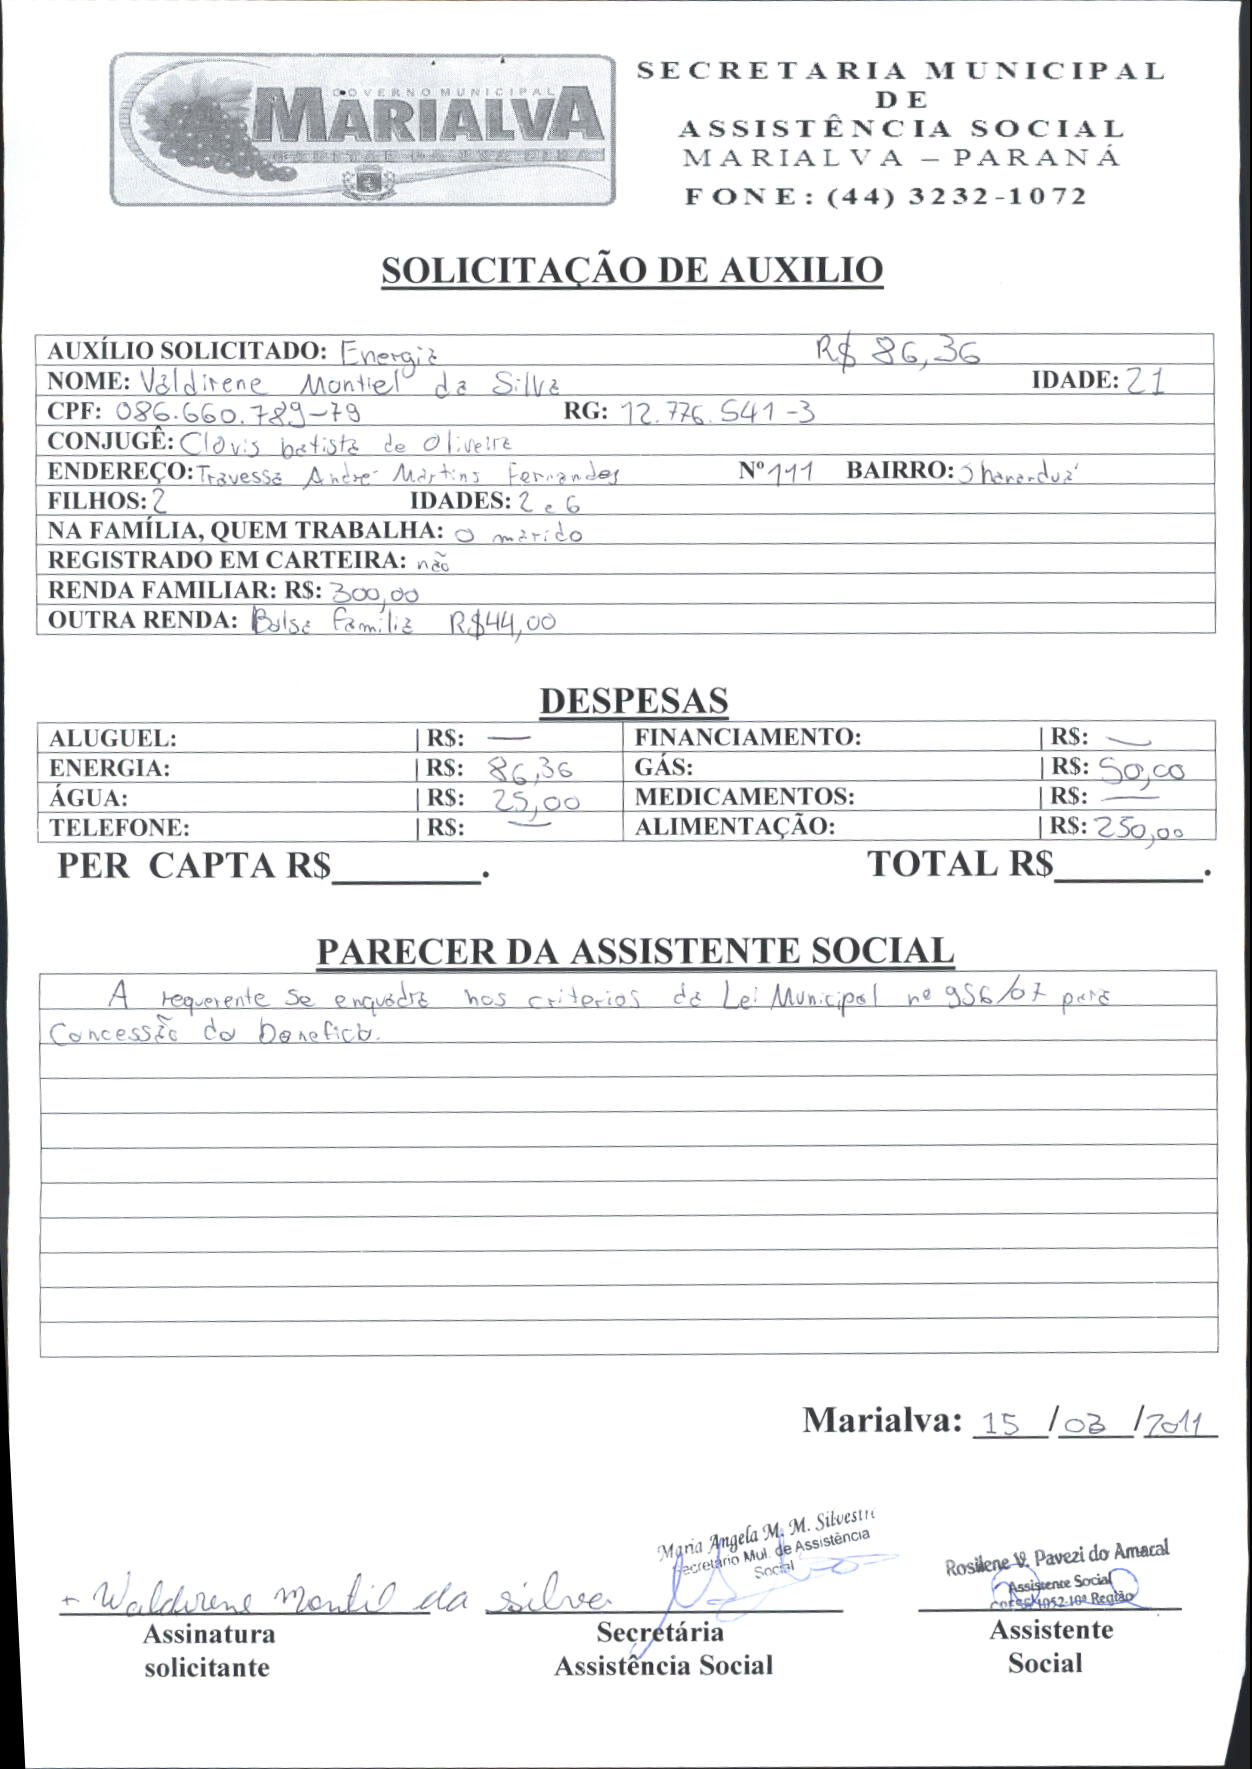 GOVERNO MUNICIPAL
MARIALVA
SECRETARIA MUNICIPAL
DE
ASSISTÊNCIA SOCIAL
MARIALVA – PARANÁ
FONE: (44) 3232-1072
SOLICITAÇÃO DE AUXILIO
AUXÍLIO SOLICITADO: Energia R$ 86,36
NOME: Valdirene Montiel da Silva IDADE: 21
CPF: 086.660.789-79 RG: 12.776.541-3
CONJUGÊ: Clovis batista de Oliveira
ENDEREÇO: Travessa André Martins Fernandes Nº 111 BAIRRO:
FILHOS: 2 IDADES: 2 e 6
NA FAMÍLIA, QUEM TRABALHA: O marido
REGISTRADO EM CARTEIRA: não
RENDA FAMILIAR: R$: 300,00
OUTRA RENDA: Bolsa Familia R$44,00
DESPESAS
ALUGUEL: | R$: — FINANCIAMENTO: | R$: —
ENERGIA: | R$: 86,36 GÁS: | R$: 50,00
ÁGUA: | R$: 25,00 MEDICAMENTOS: | R$: —
TELEFONE: | R$: — ALIMENTAÇÃO: | R$: 250,00
PER CAPTA R$________. TOTAL R$________.
PARECER DA ASSISTENTE SOCIAL
A requerente se enquadra nos criterios da Lei Municipal nº 956/07 para
Concessão do beneficio.
Marialva: 15 /03 /2011
Maria Angela M. M. Silvestre
Secretário Mul. de Assistência
Social
Rosilene V. Pavezi do Amaral
Assistente Social
Cress 4052-10ª Região
+ Waldirene Montil da silva
Assinatura
solicitante
Secretária
Assistência Social
Assistente
Social